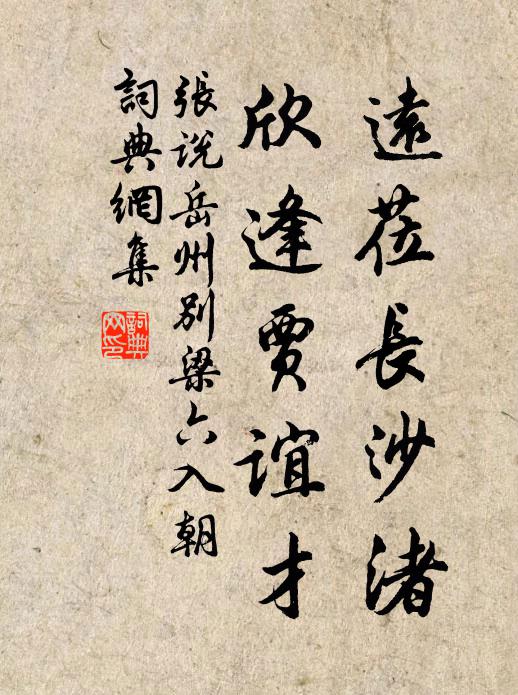 遠莅長沙渚
欣逢賈誼才
張説岳州別梁六入朝
詞典網集
詞典
网印